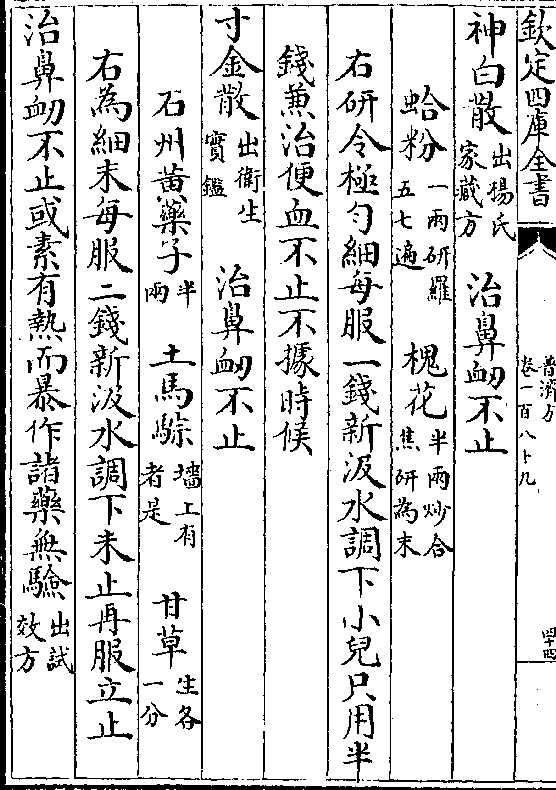 欽定四庫全書
普濟方
卷一百八十九
四十四
神白散出楊氏家藏方 治鼻衂不止
蛤粉一兩研羅五七遍 槐花半兩炒合焦研為末
右研令極勻細每服一錢新汲水調下小兒只用半
錢兼治便血不止不據時候
寸金散出衛生寳鑑 治鼻衂不止
石州黄藥子半兩 土馬騌墻上有者是 甘草生各一分
右為細末每服二錢新汲水調下未止再服立止
治鼻衂不止或素有熱而暴作諸藥無驗出試效方